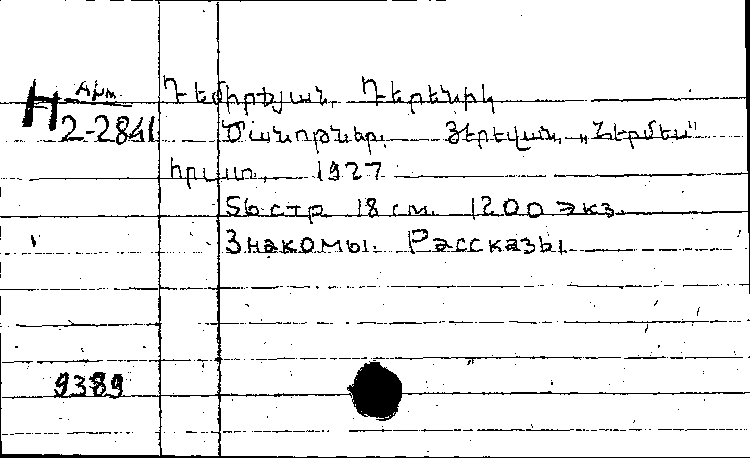 Арм.
H2-2841
Դեմիրճյան, Դերենիկ
Ծանոթներ. Յերեվան, „Հերմես"
հրատ., 1927
56 стр 18 см. 1200 экз.
Знакомы. Рассказы
9389